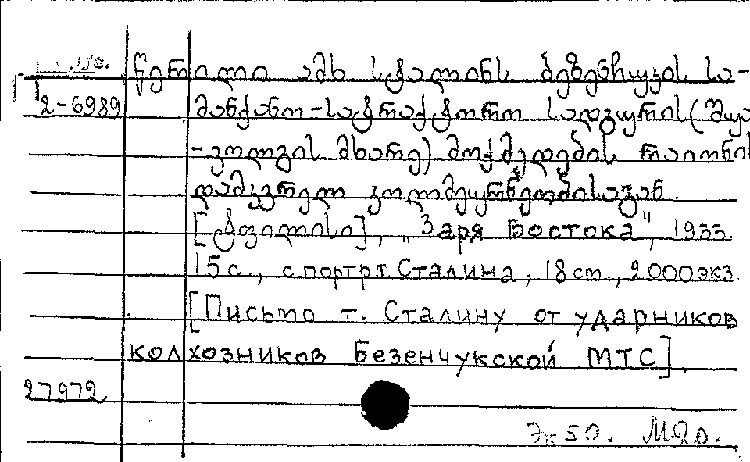 წერილი ამხ სტალინს ბეზენჩუკის სა-
2-6989 მანქანო-სატრაქტორო სადგურის (შუა
-ვოლგის მხარე) მოქმედების რაიონის
დამკვრელ კოლმეურნეობისაგან
[ტფილისი], "Заря Востока", 1933
15 с., с портрт Сталина, 18 cm, 2000 экз.
[Письмо т. Сталину от ударников
колхозников Безенчукской МТС].
27972
Эк 50.